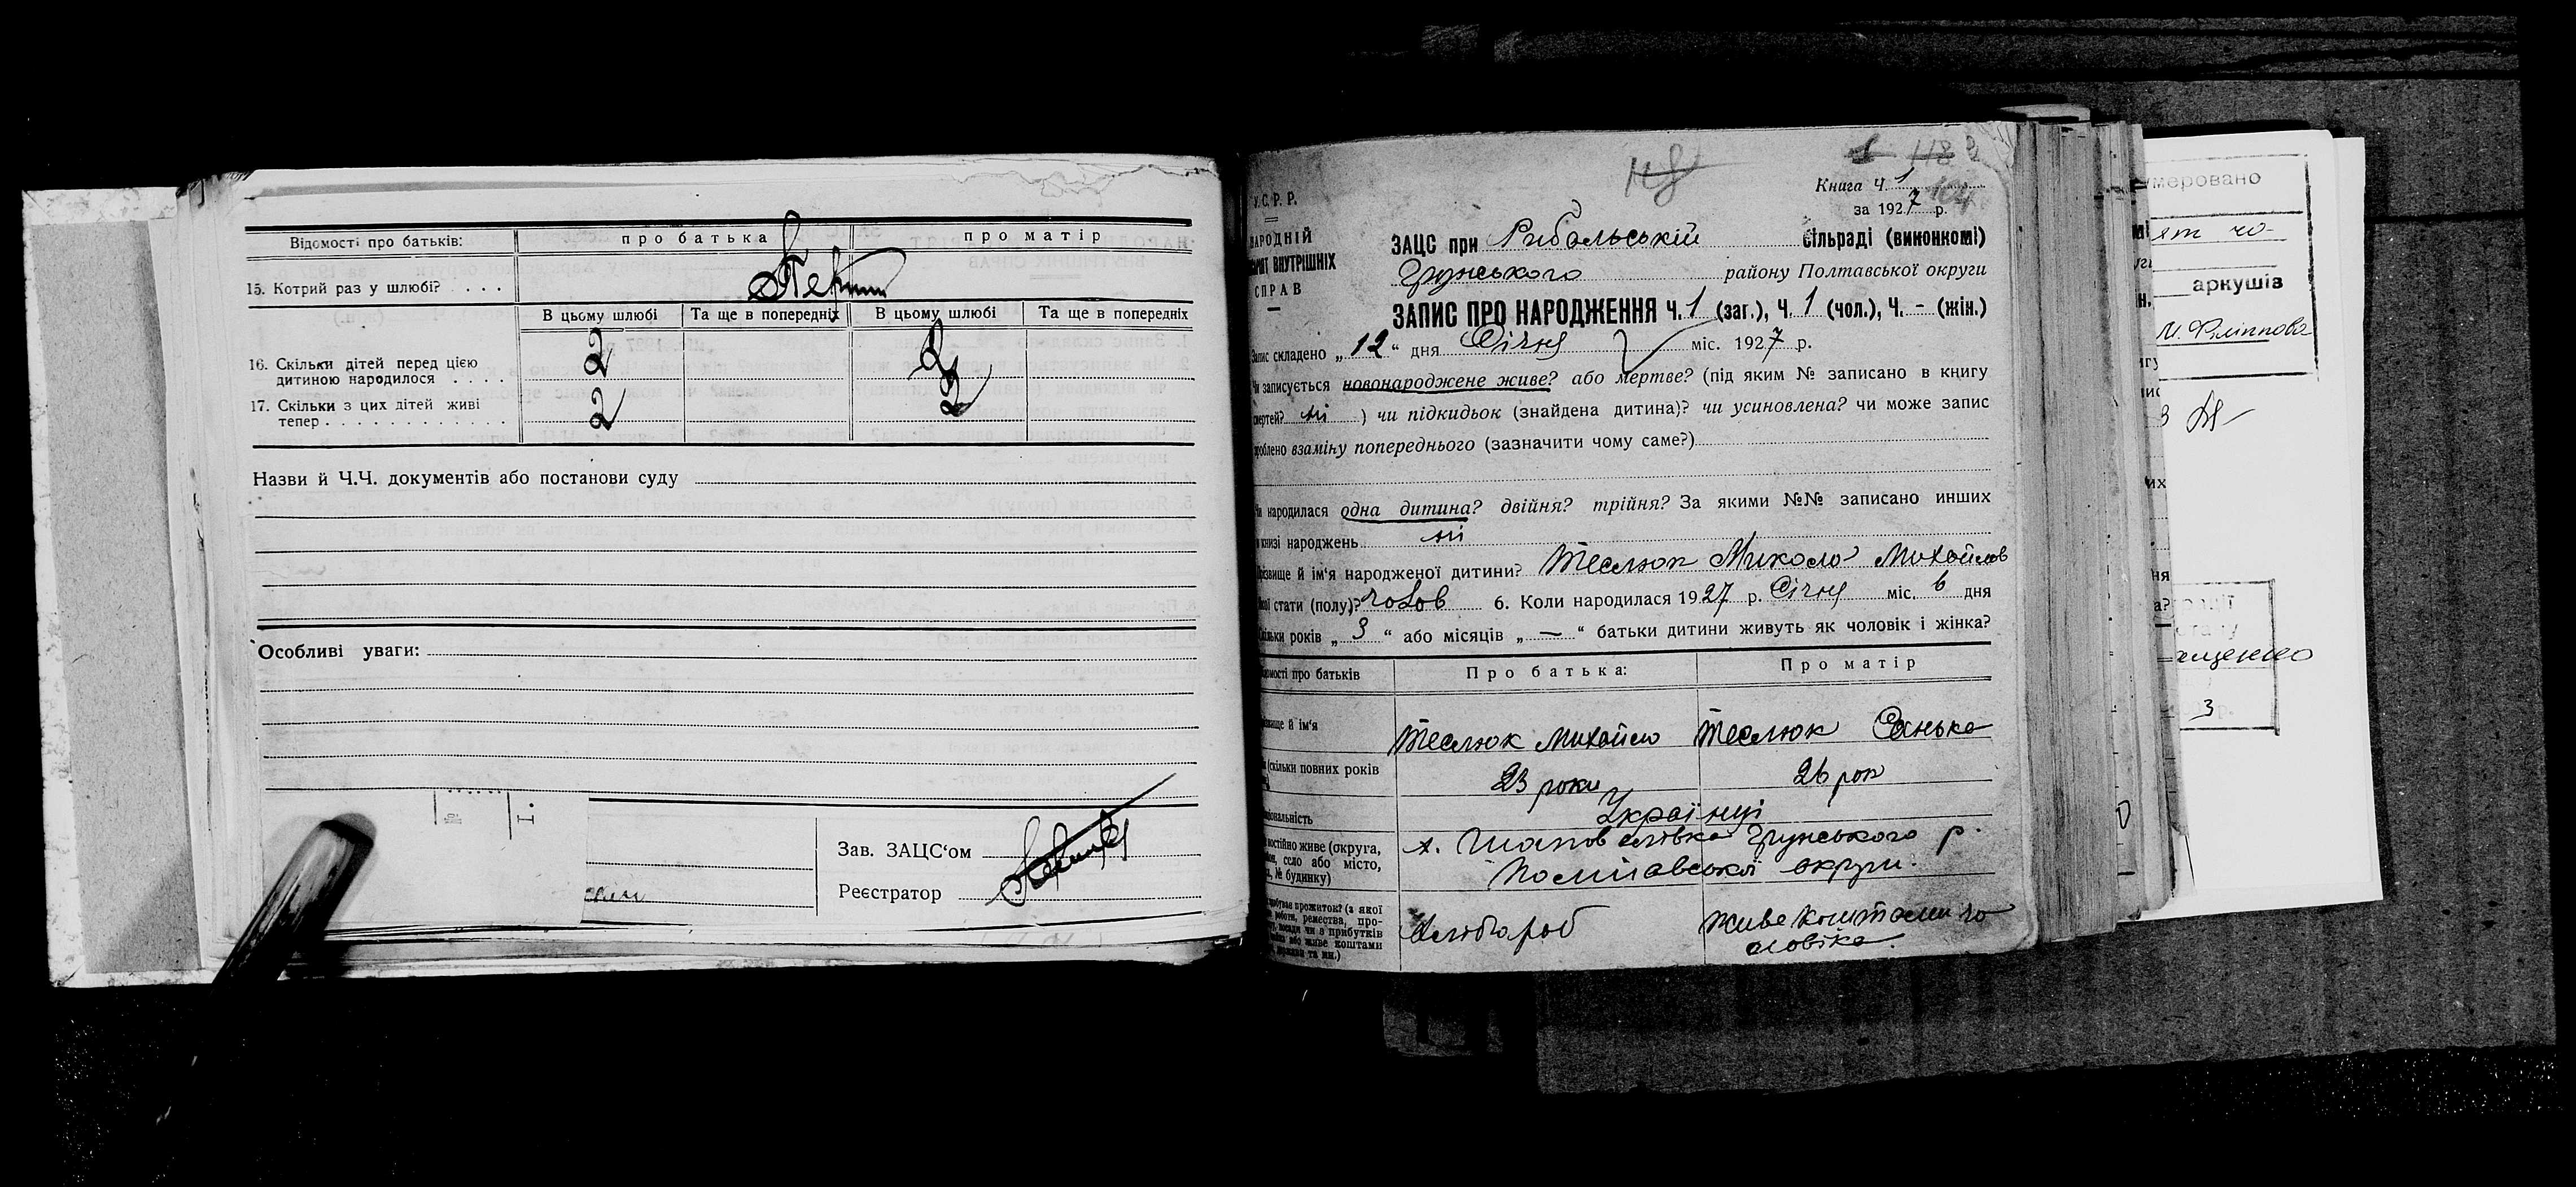 Відомості про батьків: про батька про матір
15. Котрий раз у шлюбі? . . . .
В цьому шлюбі Та ще в попередніх В цьому шлюбі Та ще в попередніх
16. Скільки дітей перед цією
дитиною народилося . . . . 2 2
17. Скільки з цих дітей живі
тепер . . . . . . . . . . . . . 2 2
Назви й Ч.Ч. документів або постанови суду
Особливі уваги:
Зав. ЗАЦС‘ом
Реєстратор
118
1 118 2
У.С.Р.Р.
Книга Ч. 1
за 1927 р.
НАРОДНІЙ
ВНУТРІШНІХ
СПРАВ
ЗАЦС при Рибальській сільраді (виконкомі)
Грунського району Полтавської округи
ЗАПИС ПРО НАРОДЖЕННЯ Ч. 1 (заг.), Ч. 1 (чол.), Ч. - (жін.)
Запис складено „12“ дня Січня міс. 1927 р.
Чи записується новонароджене живе? або мертве? (під яким № записано в книгу
смертей? ні ) чи підкидьок (знайдена дитина)? чи усиновлена? чи може запис
зроблено взаміну попереднього (зазначити чому саме?)
Чи народилася одна дитина? двійня? трійня? За якими №№ записано инших
в книзі народжень ні
Прізвище й ім‘я народженої дитини? Теслюк Микола Михайлов
стати (полу)? чолов 6. Коли народилася 1927 р. Січня міс. 6 дня
Скільки років „3“ або місяців „—“ батьки дитини живуть як чоловік і жінка?
Відомості про батьків Про батька: Про матір
Прізвище й ім‘я Теслюк Михайло Теслюк Санька
(скільки повних років 23 роки 26 рок
Національність Українці
постійно живе (округа, х. Шаповалівка Грунського р.
село або місто,
№ будинку) Полтавської округи.
прожиток? (з якої
роботи, ремества, про-
посади чи з прибутків Хлібороб Живе коштами чо
або живе коштами ловіка.
держави та ин.)
умеровано
ят чо-
аркушів
И. Філіппова
3